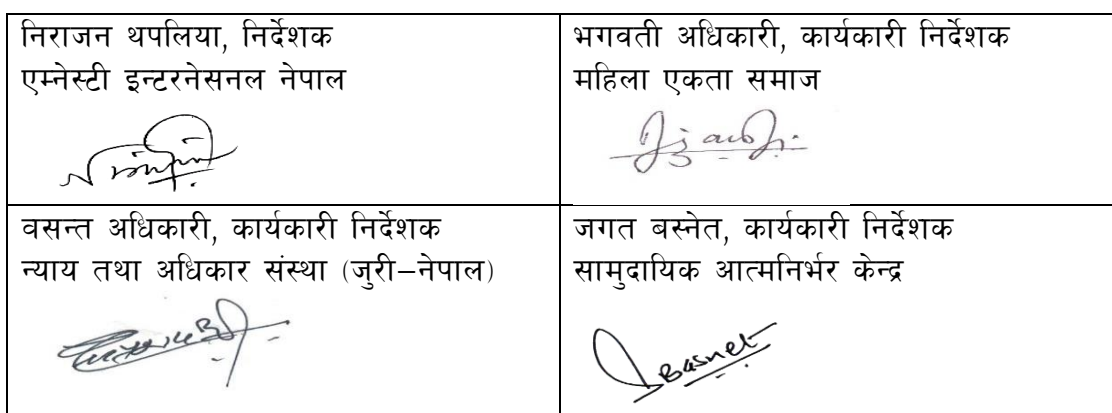 निराजन थपलिया, निर्देशक
एम्नेस्टी इन्टरनेसनल नेपाल
भगवती अधिकारी, कार्यकारी निर्देशक
महिला एकता समाज
वसन्त अधिकारी, कार्यकारी निर्देशक
न्याय तथा अधिकार संस्था (जुरी–नेपाल)
जगत बस्नेत, कार्यकारी निर्देशक
सामुदायिक आत्मनिर्भर केन्द्र
Basnet